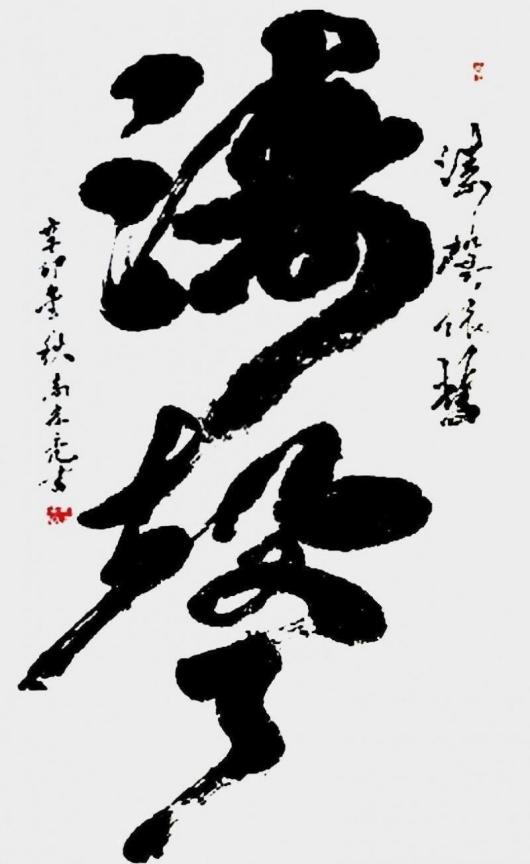 濤聲依舊
濤聲
辛卯秋